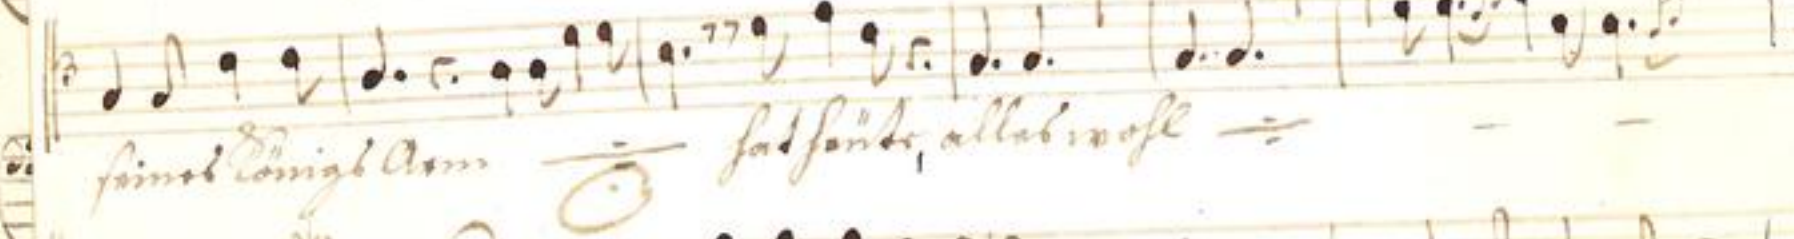 seines Königs Arm hat heüte, alles wohl